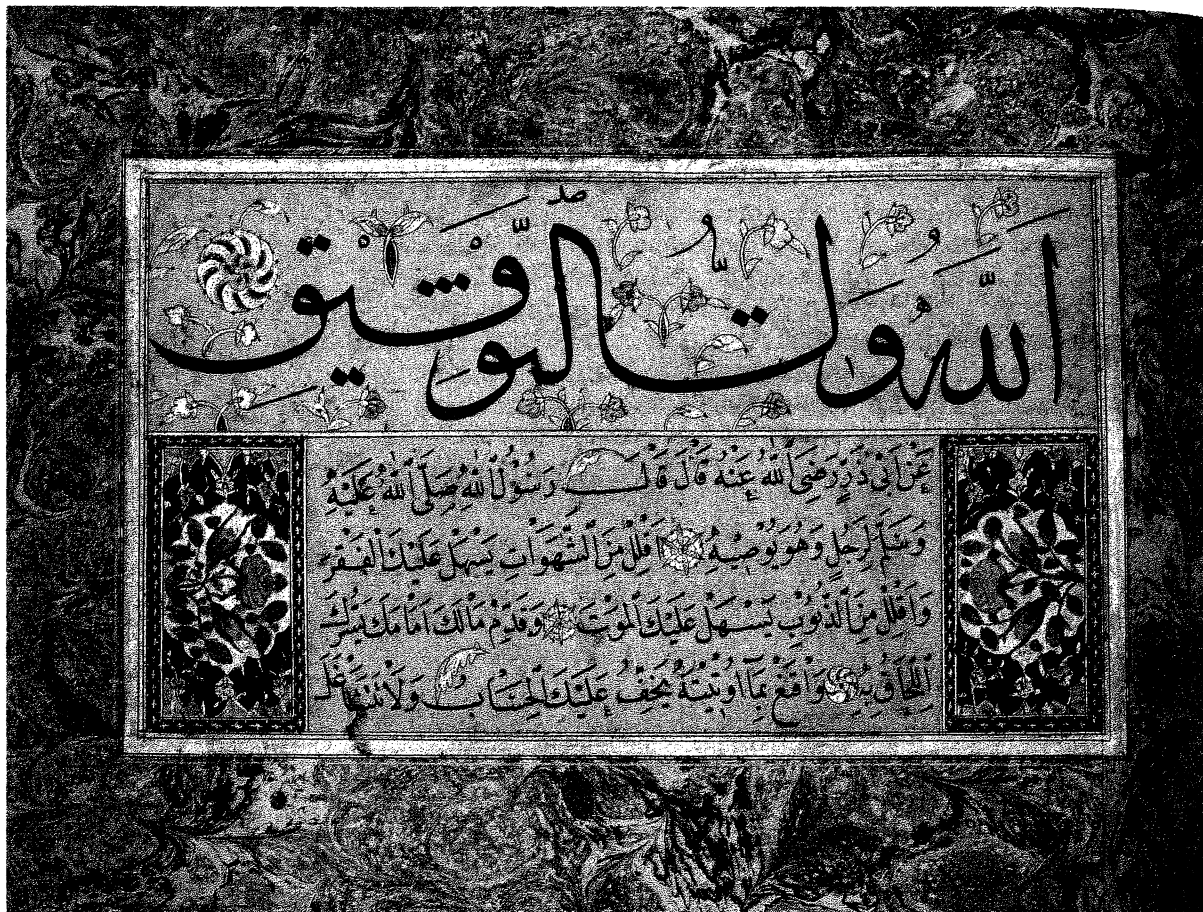 اَللّٰهُ وَلِيُّ التَّوْفِيقِ
عَنْ اَبِي ذَرٍّ رَضِيَ اللّٰهُ عَنْهُ قَالَ قَالَ رَسُوْلُ اللّٰهِ صَلَّى اللّٰهُ عَلَيْهِ
وَسَلَّمَ لِرَجُلٍ وَهُوَ يُوْصِيْهِ اَقْلِلْ مِنَ الشَّهَوَاتِ يَسْهُلْ عَلَيْكَ الْفَقْرُ
وَاَقْلِلْ مِنَ الذُّنُوْبِ يَسْهُلْ عَلَيْكَ الْمَوْتُ وَقَدِّمْ مَالَكَ اَمَامَكَ يَسُرُّكَ
اللِّحَاقُ بِهِ وَاقْنَعْ بِمَا اُوْتِيْتَهُ يَخِفُّ عَلَيْكَ الْحِسَابُ وَلَا تَتَشَاغَلْ